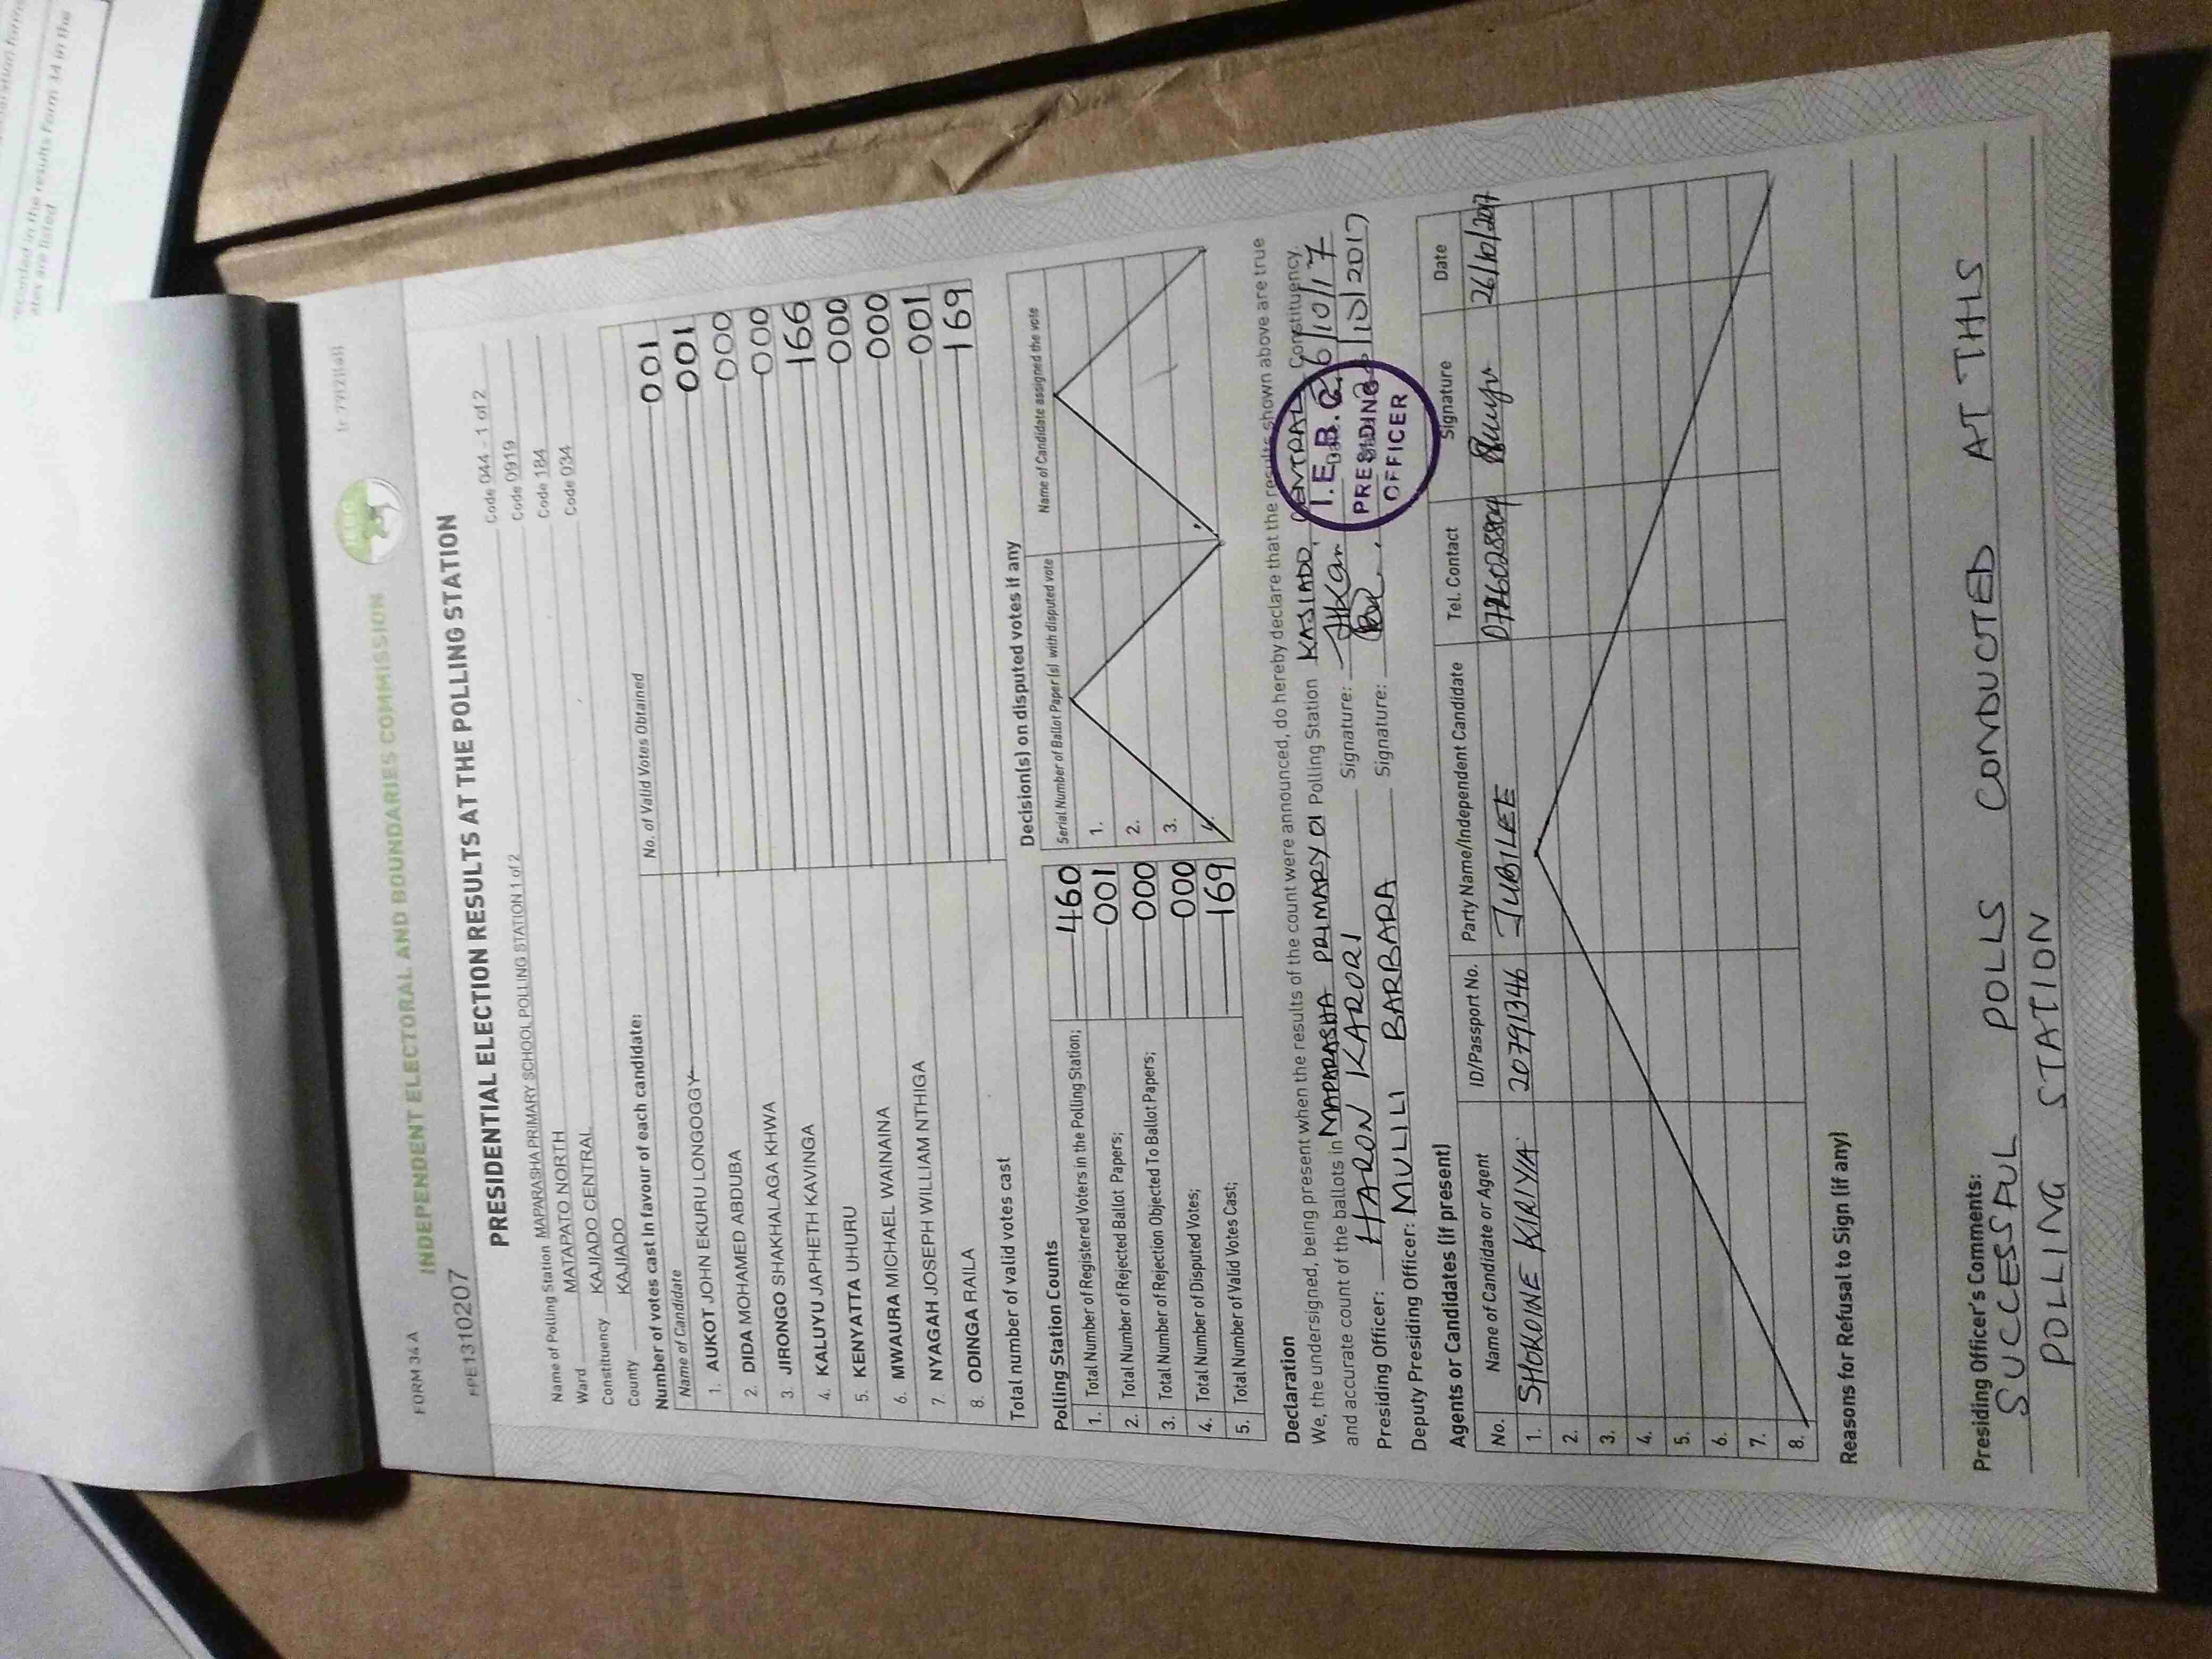 station form
recorded in the results Form 34 in the
ates are listed
FORM 34 A
INDEPENDENT ELECTORAL AND BOUNDARIES COMMISSION
IEBC
PPE13110207
PRESIDENTIAL ELECTION RESULTS AT THE POLLING STATION
Name of Polling Station MAPARASHA PRIMARY SCHOOL POLLING STATION 1 of 2 Code 044 - 1 of 2
Ward MATAPATO NORTH Code 0919
Constituency KAJIADO CENTRAL Code 184
County KAJIADO Code 034
Number of votes cast in favour of each candidate:
Name of Candidate No. of Valid Votes Obtained
1. AUKOT JOHN EKURU LONGOGGY 001
2. DIDA MOHAMED ABDUBA 001
3. JIRONGO SHAKHALAGA KHWA 000
4. KALUYU JAPHETH KAVINGA 000
5. KENYATTA UHURU 166
6. MWAURA MICHAEL WAINAINA 000
7. NYAGAH JOSEPH WILLIAM NTHIGA 000
8. ODINGA RAILA 001
Total number of valid votes cast 169
Polling Station Counts
1. Total Number of Registered Voters in the Polling Station; 460
2. Total Number of Rejected Ballot Papers; 001
3. Total Number of Rejection Objected To Ballot Papers; 000
4. Total Number of Disputed Votes; 000
5. Total Number of Valid Votes Cast; 169
Decision(s) on disputed votes if any
Serial Number of Ballot Paper (s) with disputed vote Name of Candidate assigned the vote
1.
2.
3.
4.
Declaration
We, the undersigned, being present when the results of the count were announced, do hereby declare that the results shown above are true
and accurate count of the ballots in MAPARASHA PRIMARY 01 Polling Station KAJIADO CENTRAL Constituency.
Presiding Officer: HARON KARORI Signature: 26/10/17
Deputy Presiding Officer: MULILI BARBARA Signature: /10/2017
I.E.B.C.
PRESIDING
OFFICER
Agents or Candidates (if present)
No. Name of Candidate or Agent ID/Passport No. Party Name/Independent Candidate Tel. Contact Signature Date
1. SHOKOINE KIRIYIA 20791346 JUBILEE 26/10/2017
2.
3.
4.
5.
6.
7.
8.
Reasons for Refusal to Sign (if any)
Presiding Officer's Comments:
SUCCESSFUL POLLS CONDUCTED AT THIS
POLLING STATION